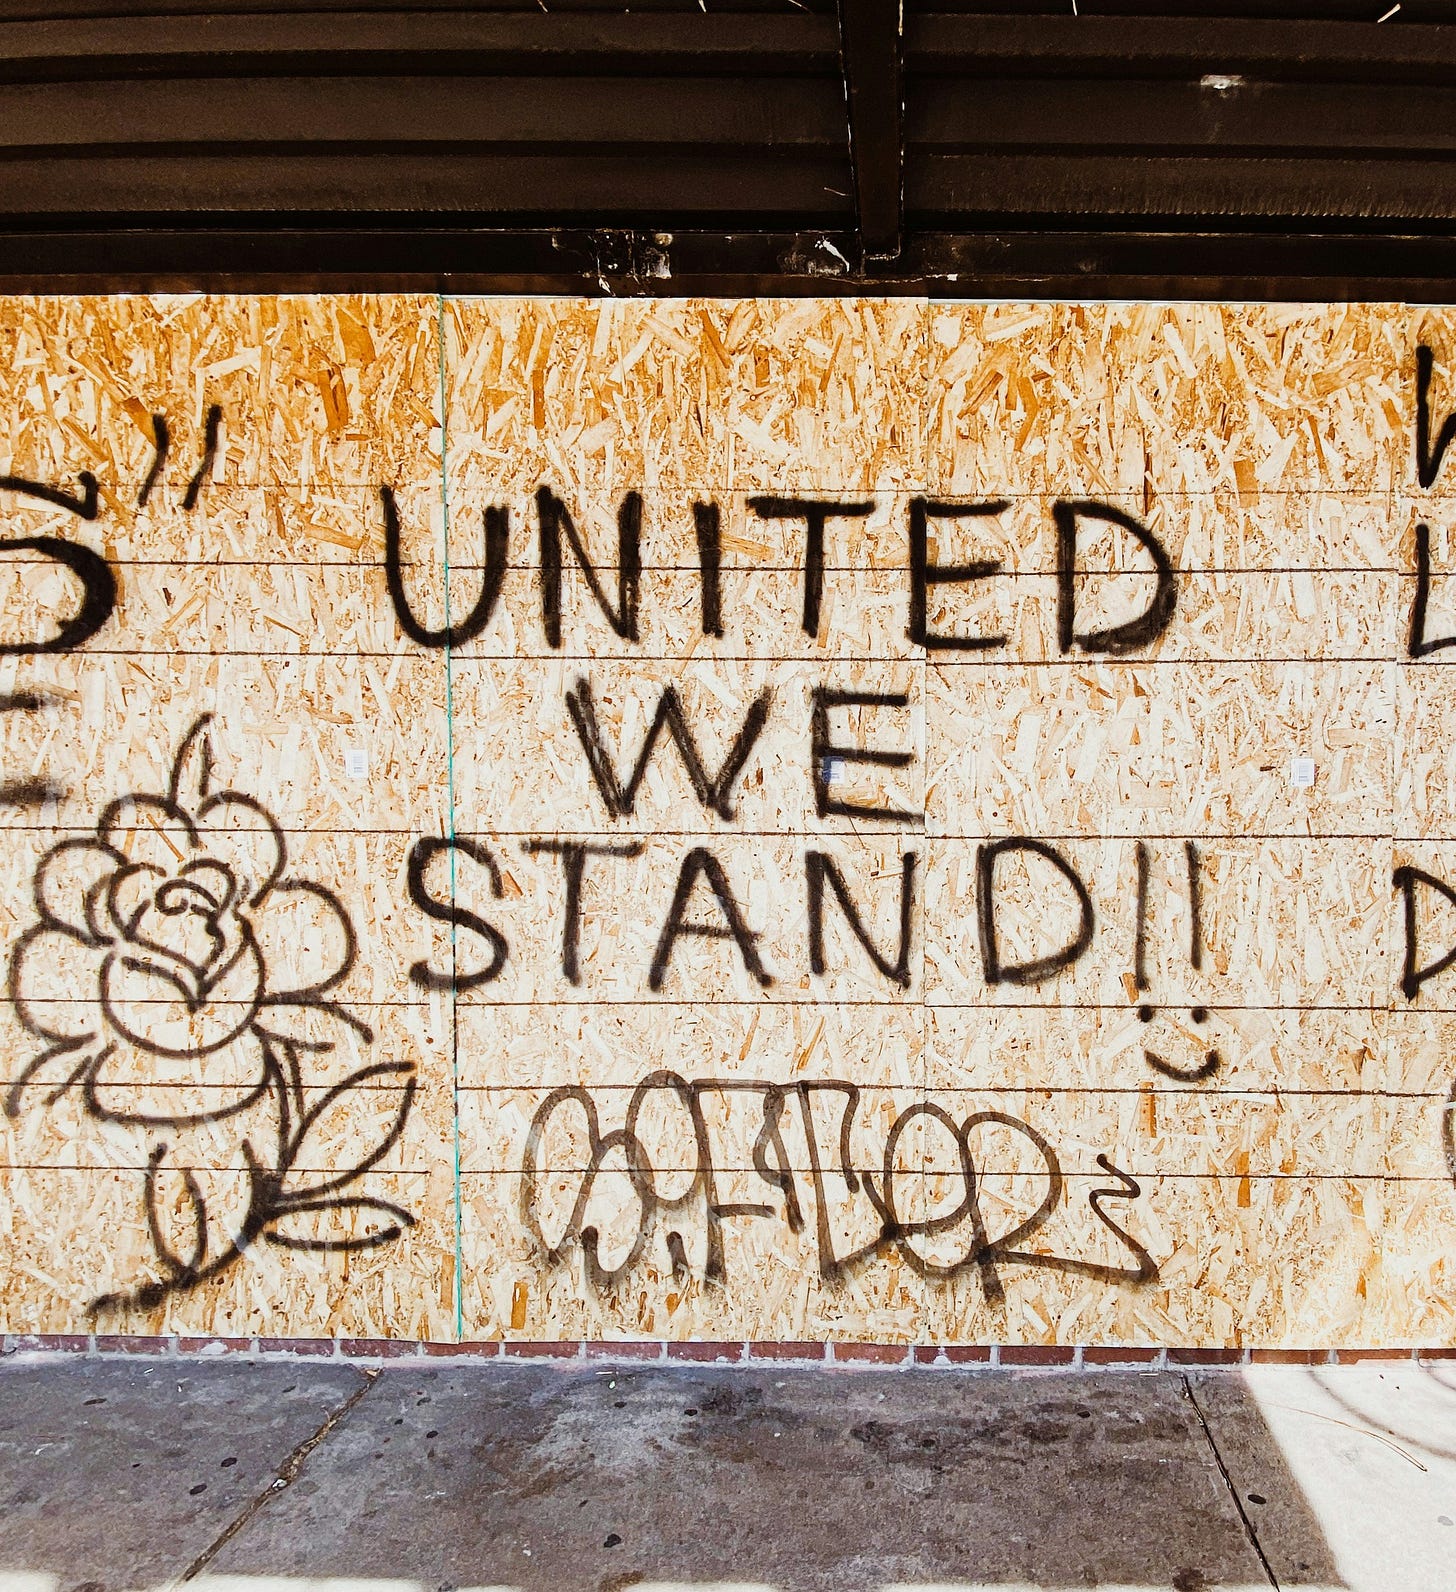 UNITED
WE
STAND!!